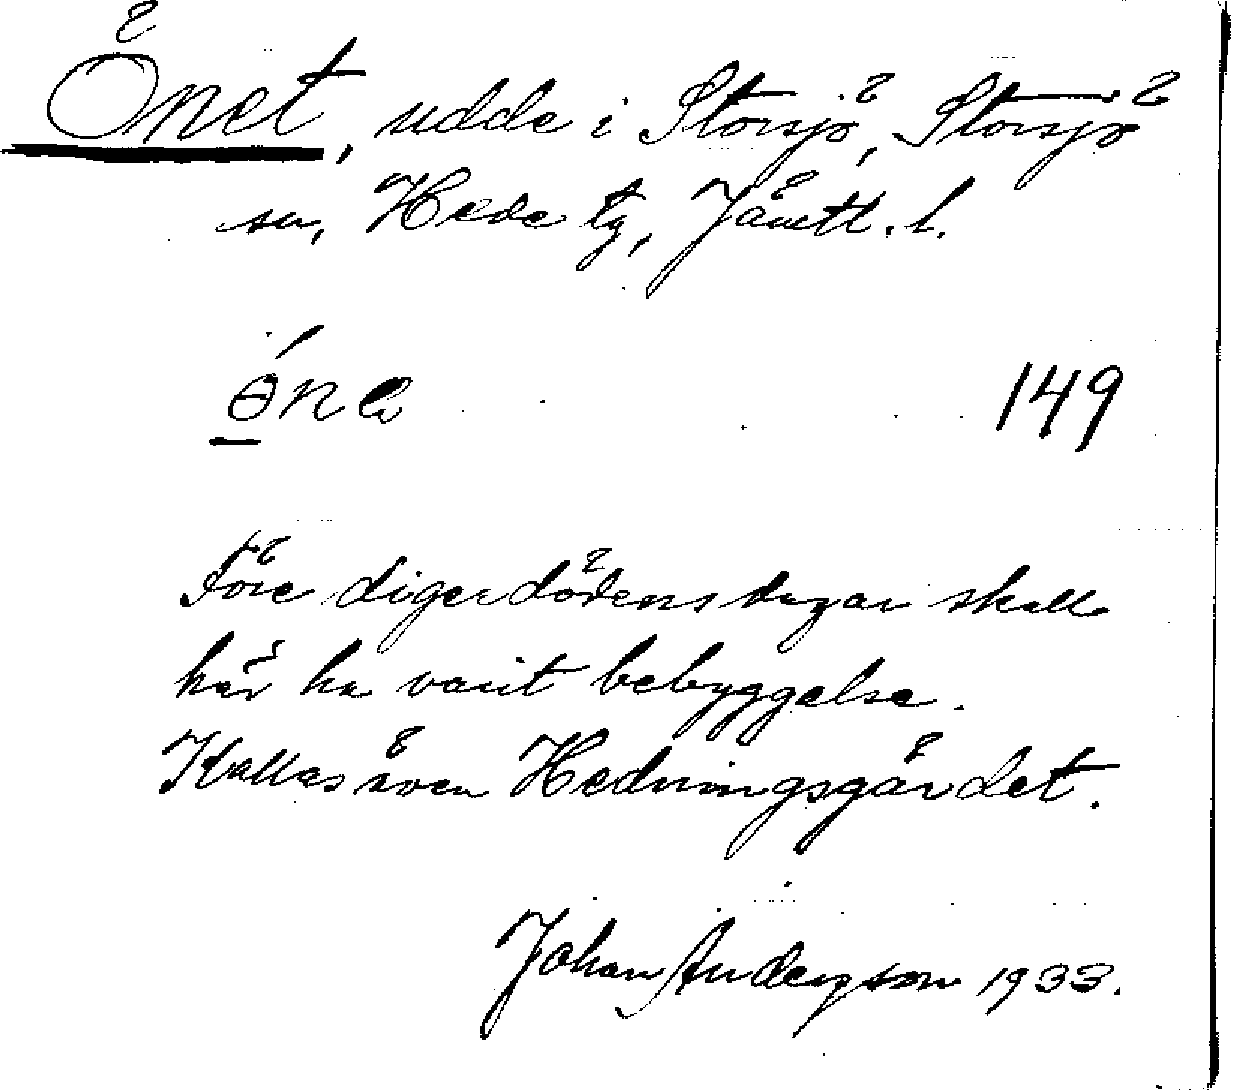 Önet, udde i Storsjö, Storsjö
sn, Hede tg, Jämtl. l.
ǿna 149
Före digerdödens dagar skall
här ha varit bebyggelse.
Kallas även Hedningsgärdet.
Johan Anderzson 1933.